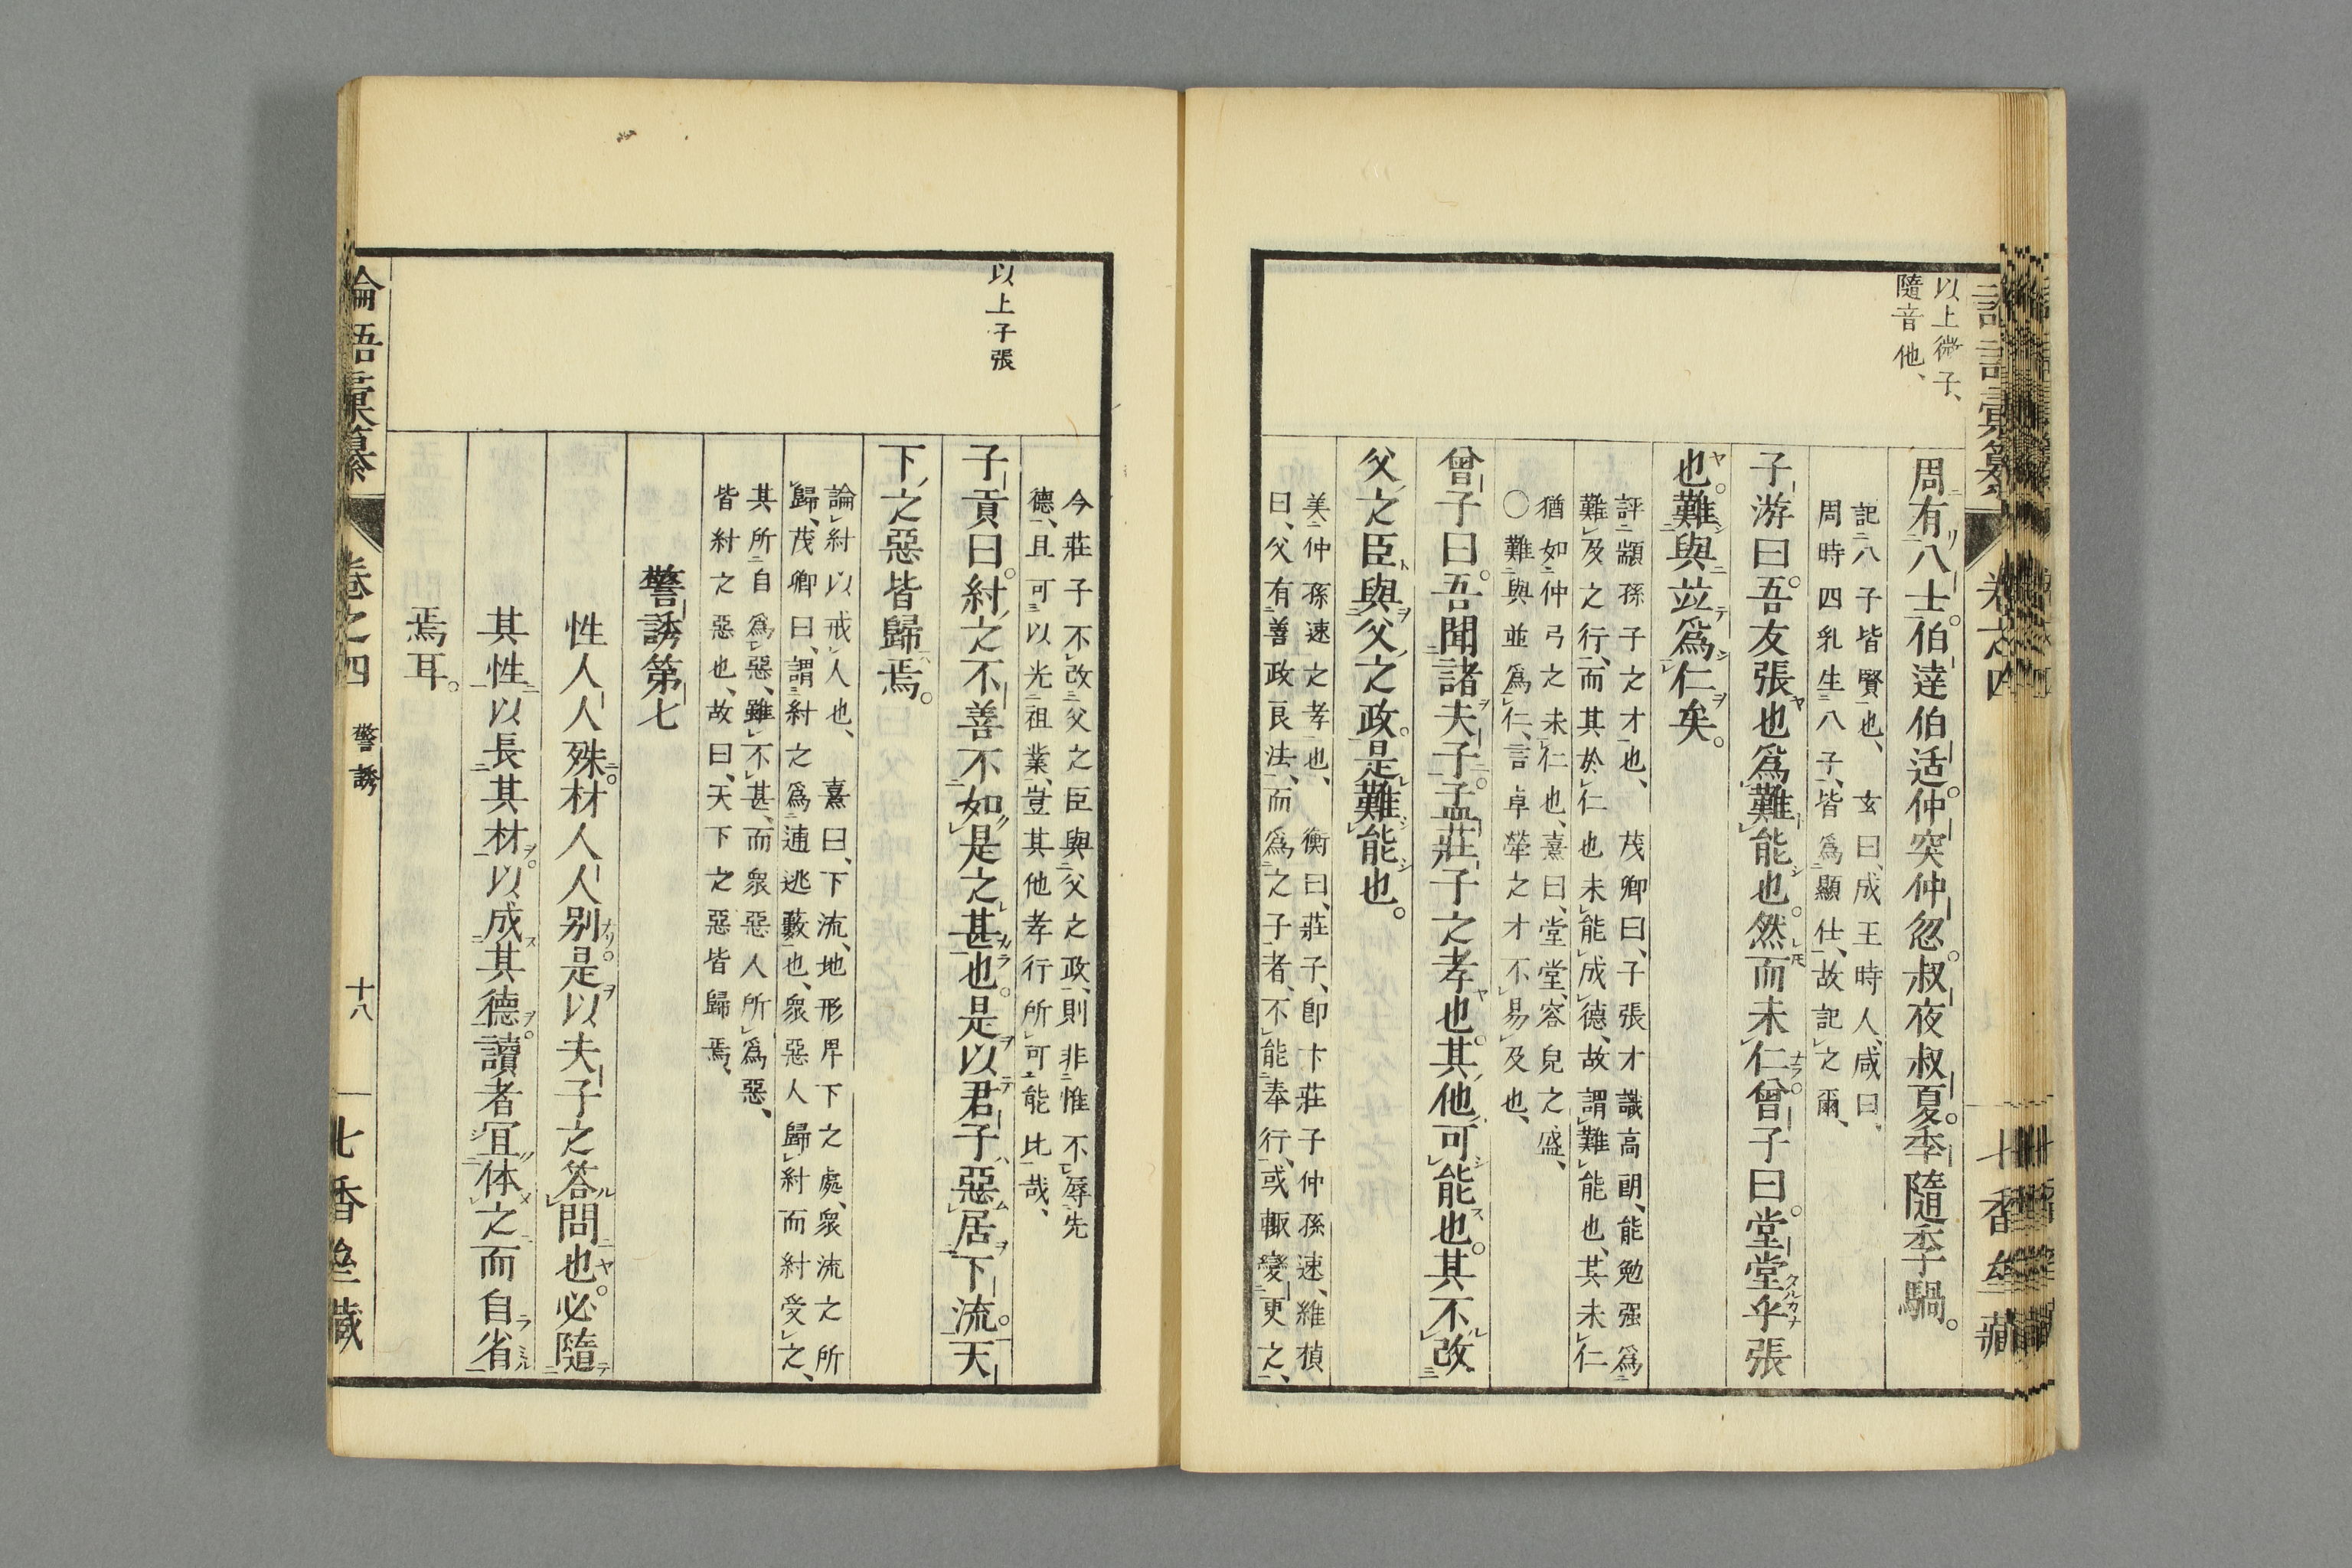 以上微子、
隨音他、
周有八士。伯達伯适。仲突仲忽。叔夜叔夏。季隨季騧。
記八子皆賢也、玄曰、成王時人、咸曰、
周時四乳生八子、皆爲顯仕、故記之爾、
子游曰。吾友張也爲難能也。然而未仁。曾子曰。堂堂乎張
也。難與竝爲仁矣。
評顓孫子之才也、茂卿曰、子張才識高朗、能勉强爲
難及之行、而其於仁也未能成德、故謂難能也、其未仁
猶如仲弓之未仁也、熹曰、堂堂、容皃之盛、
〇難與並爲仁、言卓犖之才不易及也、
曾子曰。吾聞諸夫子。孟莊子之孝也。其他可能也。其不改
父之臣與父之政。是難能也。
美仲孫速之孝也、衡曰、莊子、卽卞莊子仲孫速、維楨
曰、父有善政良法、而爲之子者、不能奉行、或輙變更之、
以上子張
今莊子不改父之臣與父之政、則非惟不辱先
德、且可以光祖業、豈其他孝行所可能比哉、
子貢曰。紂之不善不如是之甚也。是以君子惡居下流。天
下之惡皆歸焉。
論紂以戒人也、熹曰、下流、地形卑下之處、衆流之所
歸、茂卿曰、謂紂之爲逋逃藪也、衆惡人歸紂而紂受之、
其所自爲惡、雖不甚、而衆惡人所爲惡、
皆紂之惡也、故曰、天下之惡皆歸焉、
警誘第七
性人人殊。材人人別。是以夫子之答問也。必隨
其性以長其材。以成其德。讀者宜体之而自省
焉耳。
論語彙纂 卷之四 警誘 十八 七香齋藏